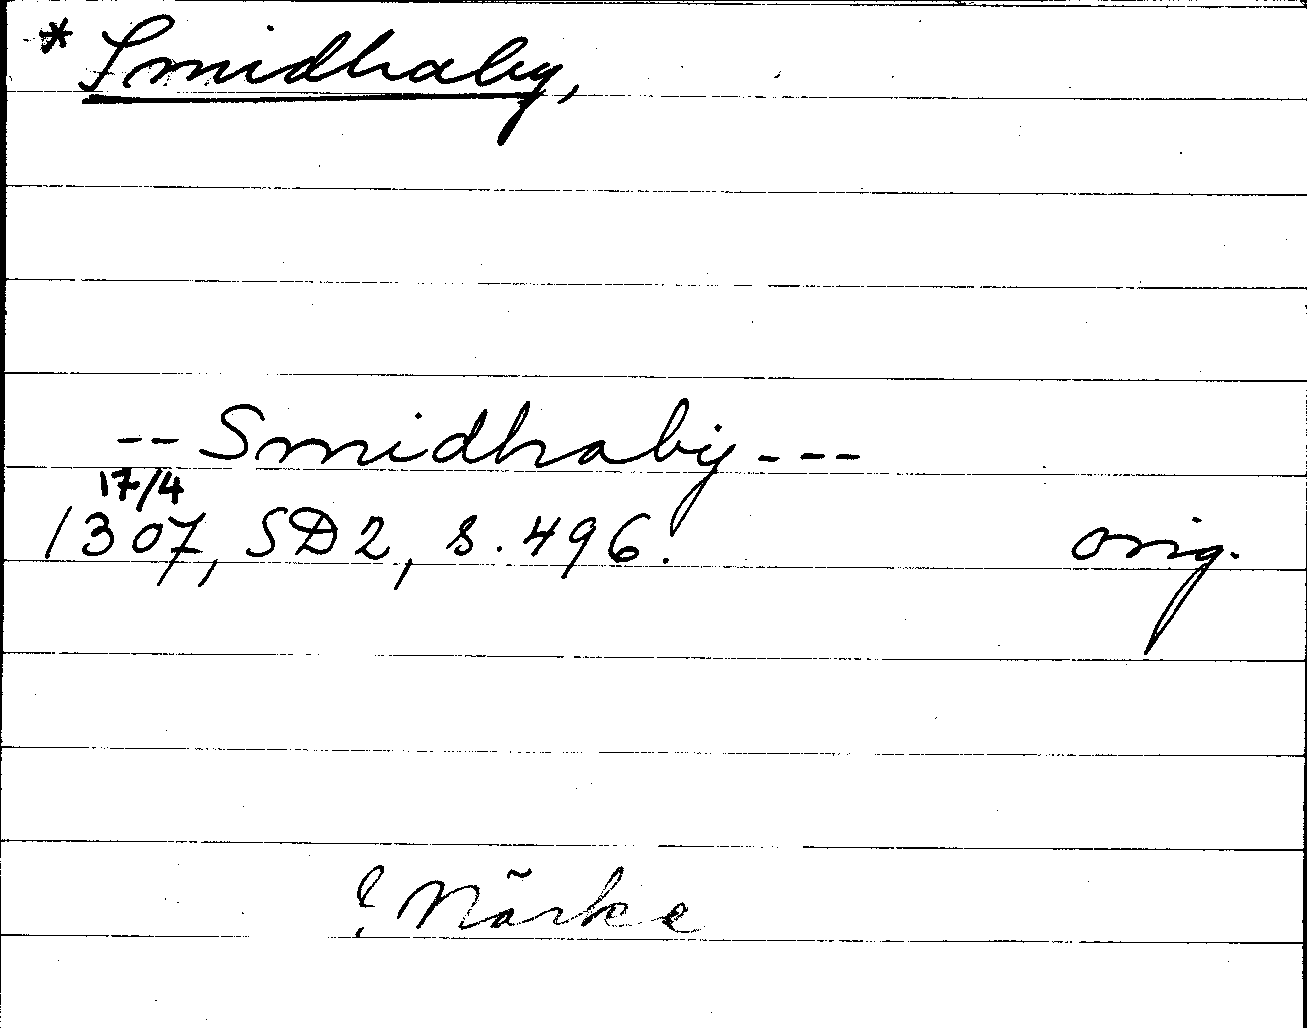 * Smidhaby,
-- Smidhabÿ ---
17/4
1307, SD2, s. 496. orig.
? Närke